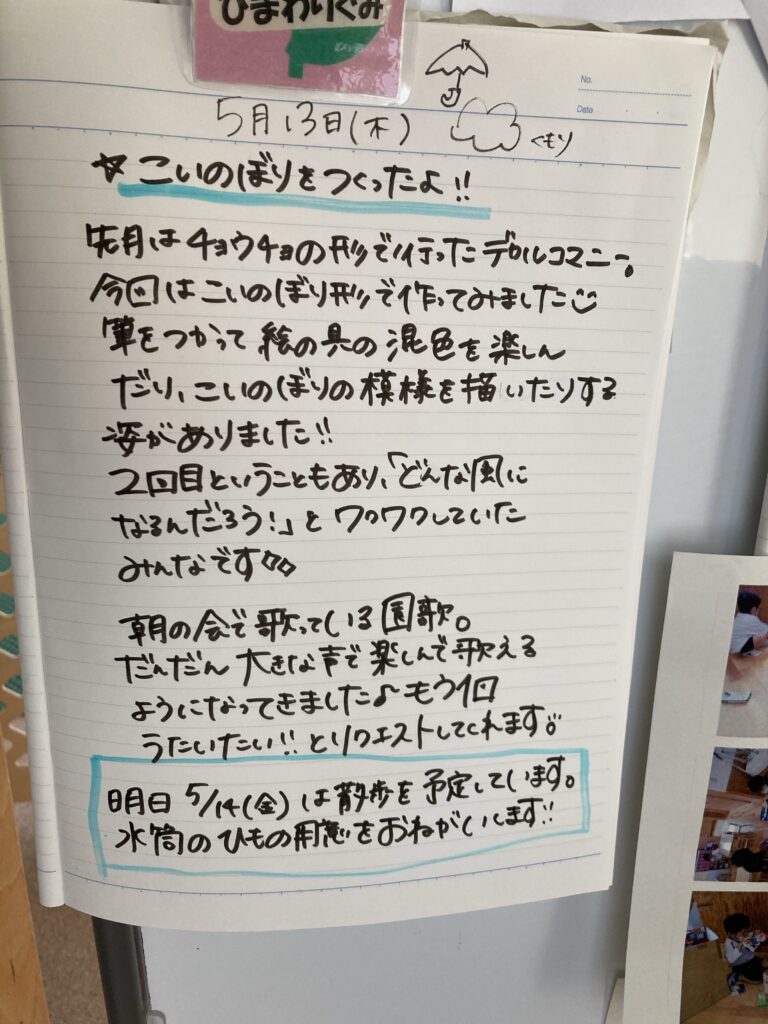 ひまわりぐみ
No.
Date
5月13日(木) くもり
☆こいのぼりをつくったよ!!
先月はチョウチョの形で行ったデカルコマニー。
今回はこいのぼり形で作ってみました
筆をつかって絵の具の混色を楽しん
だり、こいのぼりの模様を描いたりする
姿がありました!!
2回目ということもあり、「どんな風に
なるんだろう!」とワクワクしていた
みんなです
朝の会で歌っている園歌。
だんだん大きな声で楽しんで歌える
ようになってきました♪もう1回
うたいたい!!とリクエストしてくれます。
明日 5/14(金)は散歩を予定しています。
水筒のひもの用意をおねがいします!!